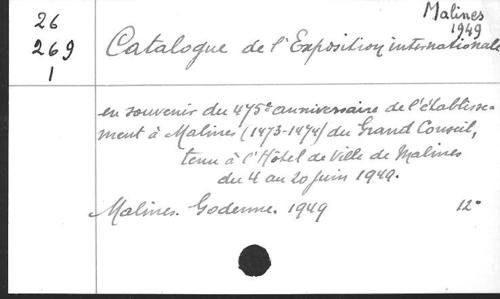 26
269
1
Malines
1949
Catalogue de l'Exposition internationale
en souvenir du 475e anniversaire de l'établisse-
ment à Malines (1473-1474) du Grand Conseil,
tenu à l'Hôtel de Ville de Malines
du 4 au 20 juin 1949.
Malines. Godenne. 1949 12°